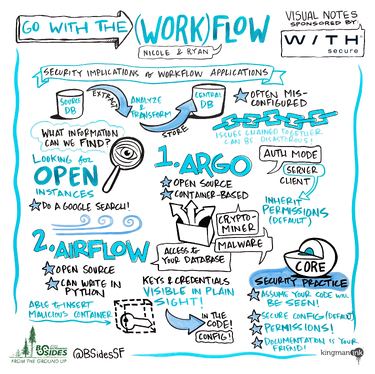 GO WITH THE
(WORK)FLOW
NICOLE & RYAN
VISUAL NOTES
SPONSORED BY
W/TH
secure
SECURITY IMPLICATIONS of WORKFLOW APPLICATIONS
SOURCE
DB
EXTRACT
ANALYZE
& TRANSFORM
STORE
CENTRAL
DB
OFTEN MIS-
CONFIGURED
ISSUES CHAINED TOGETHER
CAN BE DISASTROUS!
WHAT INFORMATION
CAN WE FIND?
LOOKING for
OPEN
INSTANCES
DO A GOOGLE SEARCH!
1. ARGO
OPEN SOURCE
CONTAINER-BASED
AUTH MODE
SERVER
CLIENT
INHERIT
PERMISSIONS
(DEFAULT)
CRYPTO-
MINER
MALWARE
ACCESS to
YOUR DATABASE
2. AIRFLOW
OPEN SOURCE
CAN WRITE IN
PYTHON
ABLE to INSERT
MALICIOUS CONTAINER
KEYS & CREDENTIALS
VISIBLE IN PLAIN
SIGHT!
IN THE
CODE!
CONFIG!
CORE
SECURITY PRACTICE
ASSUME YOUR CODE WILL
BE SEEN!
SECURE CONFIG (DEFAULT)
PERMISSIONS!
DOCUMENTATION IS YOUR
FRIEND!
BSIDES
FROM THE GROUND UP
@BSidesSF
kingmanink